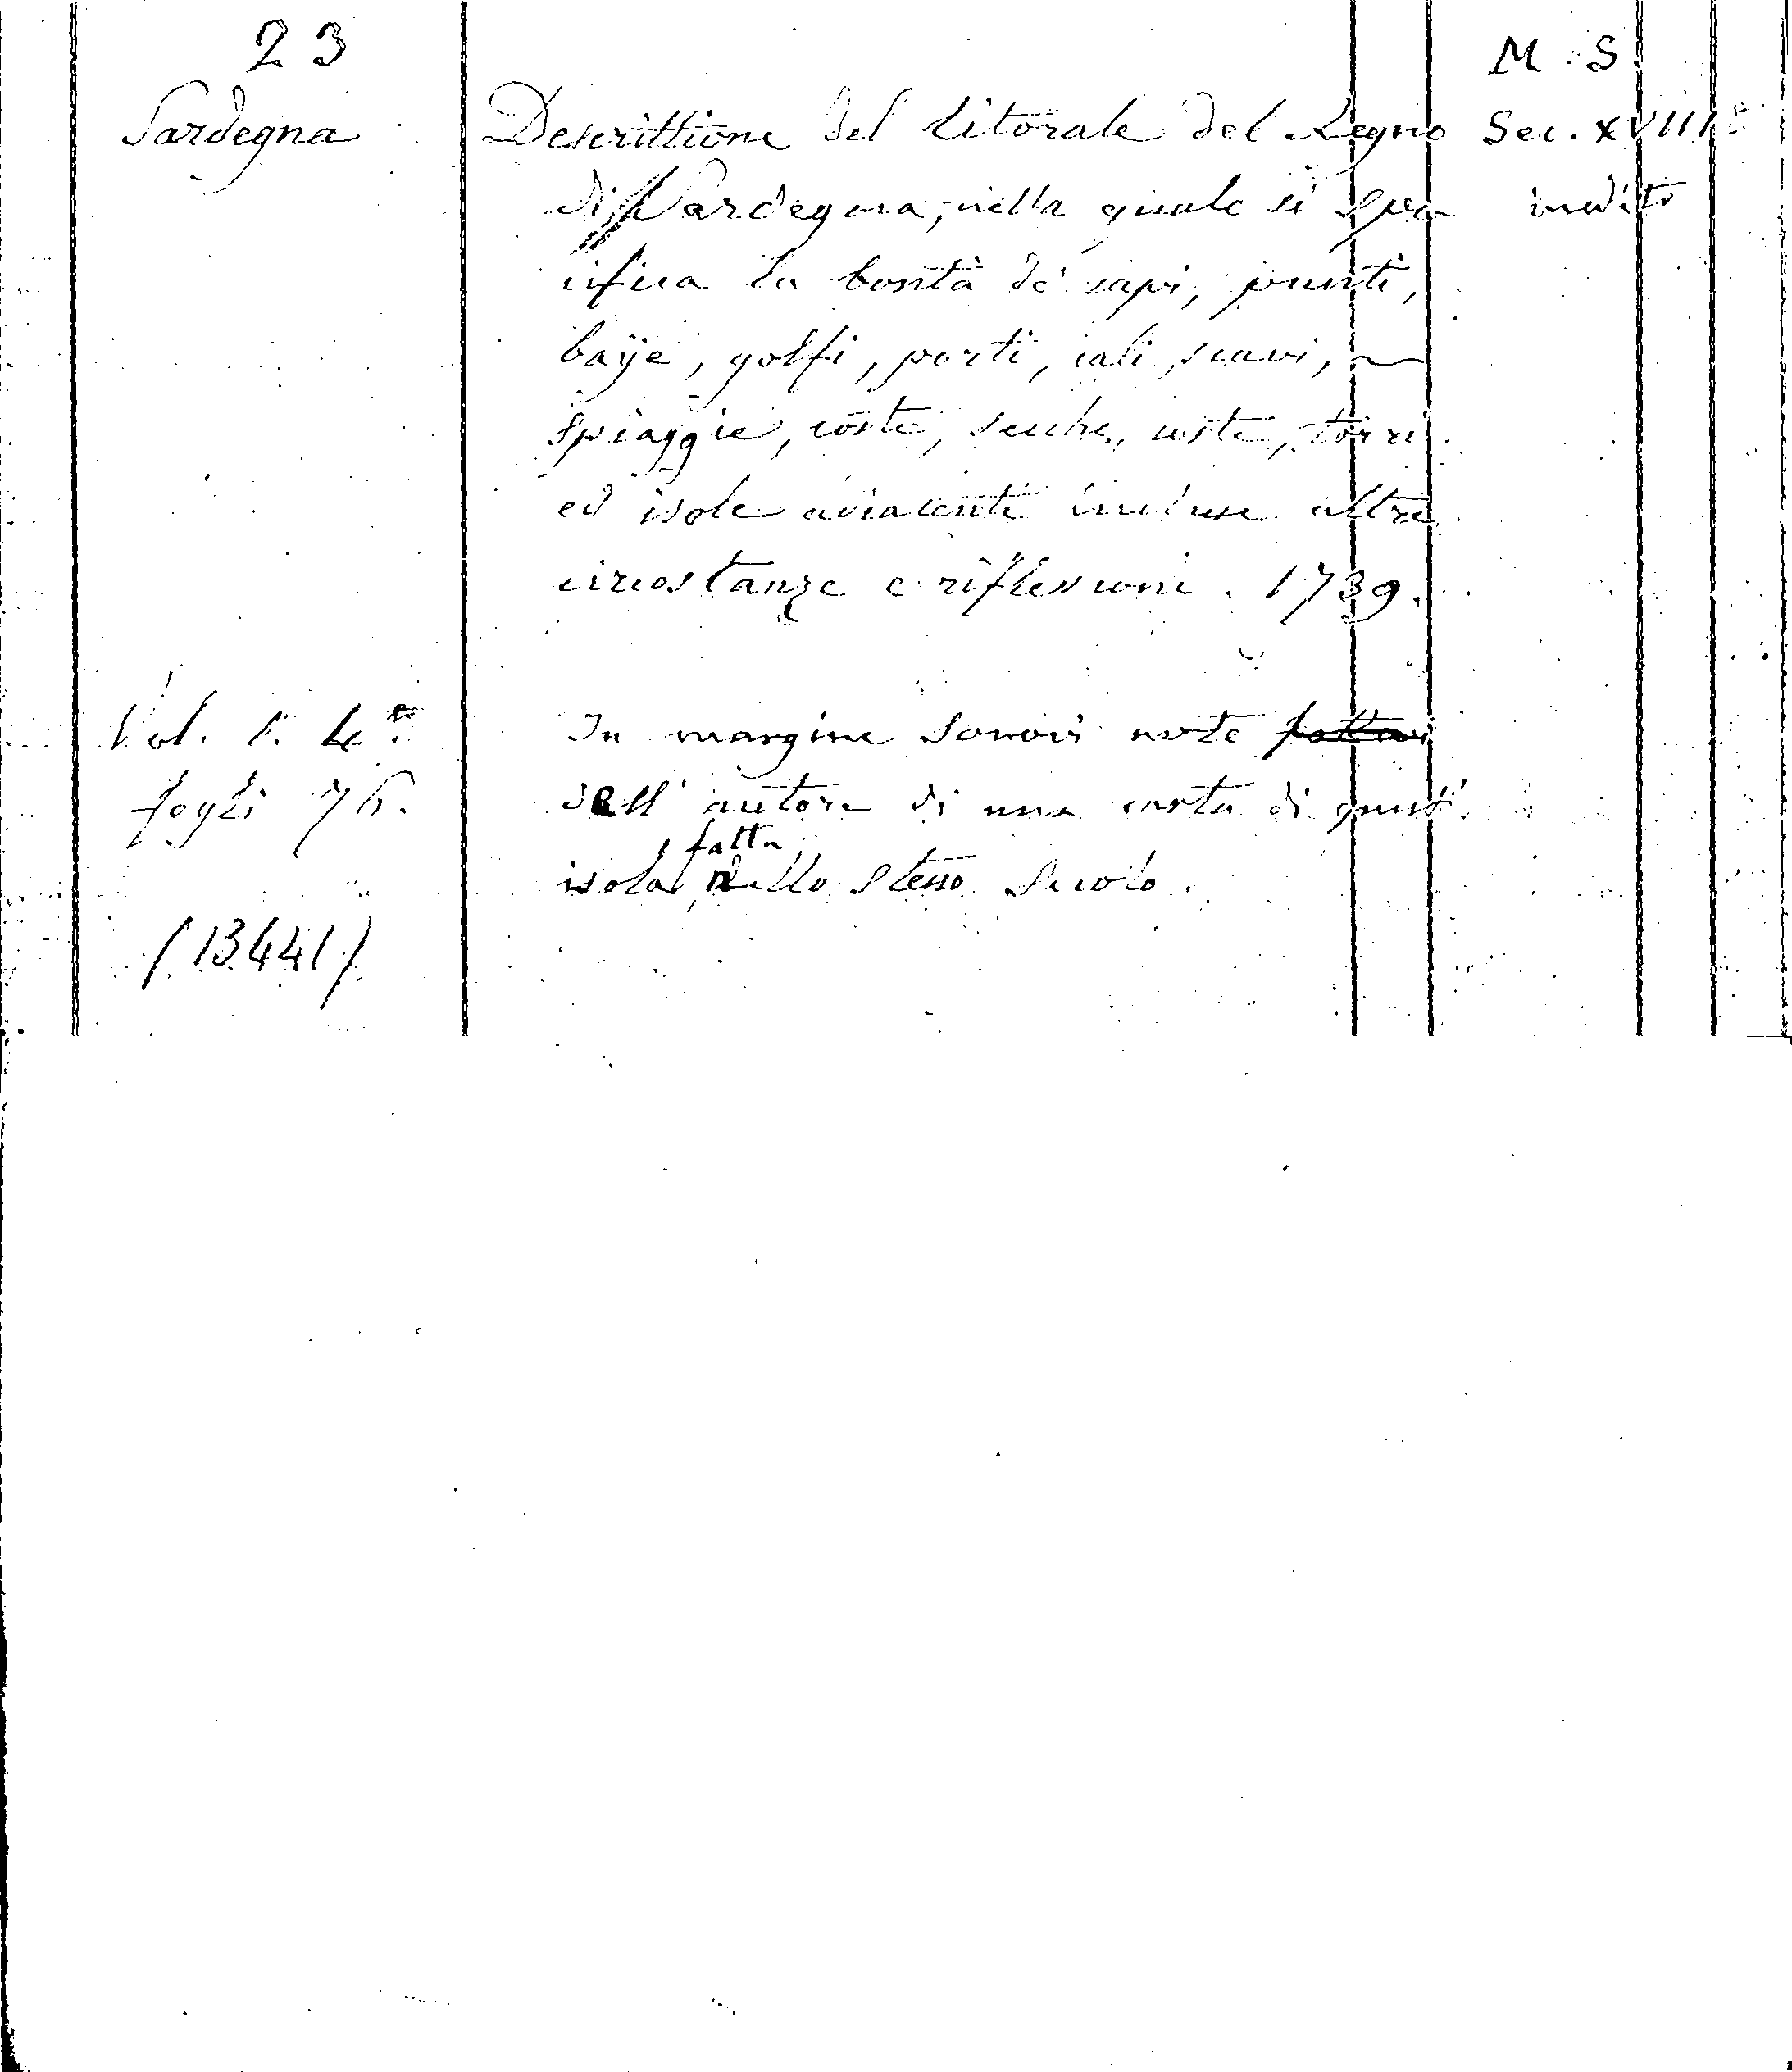 23
Sardegna
M. S.
Sec. XVIII°
inedito
Descrittione del Litorale del Regno
di Sardegna, nella quale si spe-
cifica la bontà de' capi, punte,
baÿe, golfi, porti, cali, scavi,
spiaggie, coste, secche, coste, torri
ed isole adiacenti incluse altre
circostanze e riflessioni. 1739.
Vol. 1. 4.to
fogli 76.
(13441)
In margine sonovi note
dell' autore di una carta di quest'
isola, fatta nello stesso secolo.